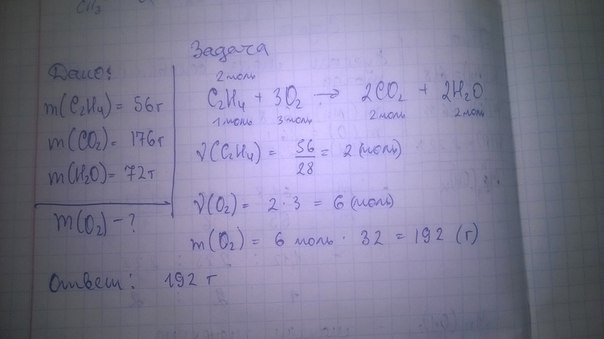 CH₃
Задача
Дано:
m(C₂H₄) = 56г
m(CO₂) = 176г
m(H₂O) = 72г
m(O₂) – ?
2 моль
C₂H₄ + 3O₂ → 2CO₂ + 2H₂O
1 моль 3 моль 2 моль 2 моль
ν(C₂H₄) = 56/28 = 2 (моль)
ν(O₂) = 2 · 3 = 6 (моль)
m(O₂) = 6 моль · 32 = 192 (г)
Ответ: 192 г